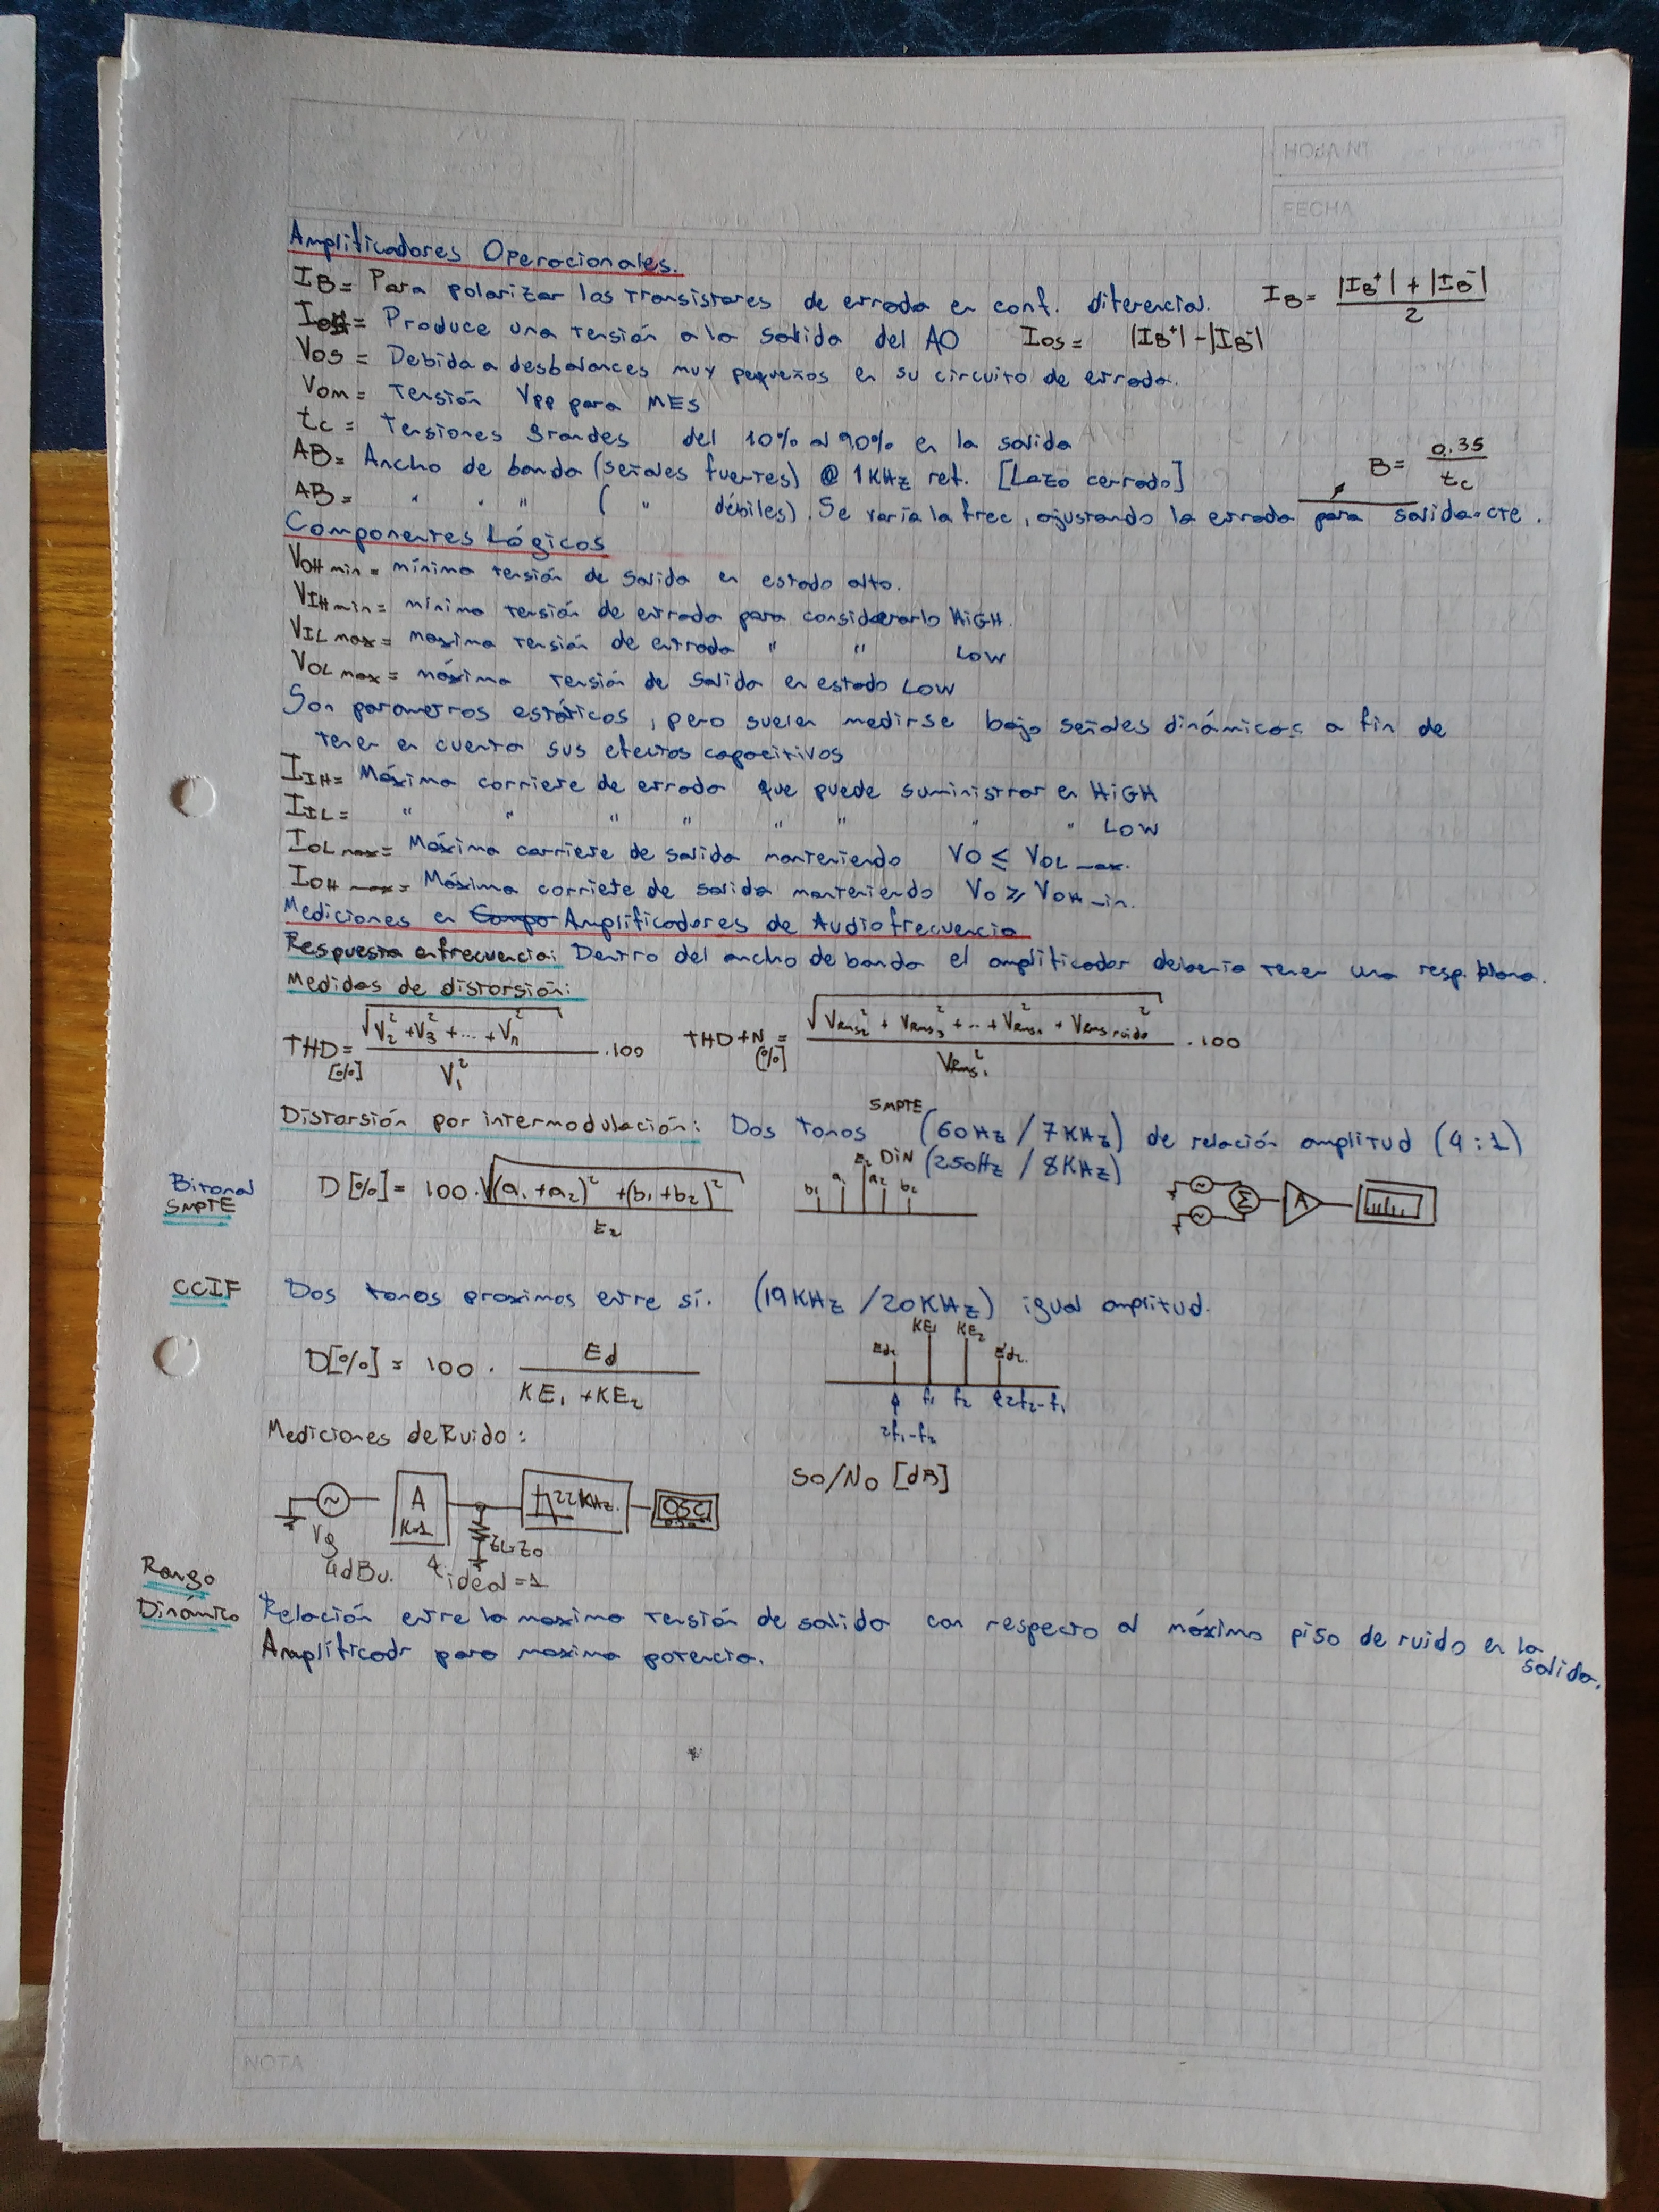 FECHA
Amplificadores Operacionales.
IB= Para polarizar los transistores de entrada en conf. diferencial. IB= |IB⁺| + |IB⁻| / 2
IOS= Produce una tensión a la salida del AO IOS= |IB⁺| - |IB⁻|
VOS = Debida a desbalances muy pequeños en su circuito de entrada.
VOM = Tensión VPP para MES
tc = Tensiones grandes del 10% al 90% en la salida
AB= Ancho de banda (señales fuertes) @ 1KHz ref. [Lazo cerrado] B= 0.35 / tc
AB= " " " ( " débiles). Se varía la frec, ajustando la entrada para salida=cte.
Componentes Lógicos
VOH min = mínima tensión de salida en estado alto.
VIH min = mínima tensión de entrada para considerarlo HiGH.
VIL max = maxima tensión de entrada " " LOW
VOL max = máxima tensión de salida en estado LOW
Son parametros estáticos, pero suelen medirse bajo señales dinámicas a fin de
tener en cuenta sus efectos capacitivos
IIH= Máxima corriente de entrada que puede suministrar en HiGH
IIL= " " " " " " " " LOW
IOL max= Máxima corriente de salida manteniendo VO ≤ VOL max.
IOH max= Máxima corriente de salida manteniendo VO ≥ VOH min.
Mediciones en Campo Amplificadores de Audiofrecuencia
Respuesta en frecuencia: Dentro del ancho de banda el amplificador debería tener una resp. plana.
Medidas de distorsión:
THD [%] = √(V₂² + V₃² + ... + Vn²) / V₁² . 100 THD+N [%] = √(VRMS₂² + VRMS₃² + .. + VRMSn² + VRMS ruido²) / VRMS₁² . 100
Distorsión por intermodulación: Dos tonos SMPTE (60Hz / 7KHz) de relación amplitud (4:1)
DiN (250Hz / 8KHz)
Bitonal
SMPTE
D[%] = 100 . √((a₁+a₂)² + (b₁+b₂)²) / E₂
b₁ a₁ E₂ a₂ b₂
Σ A
CCIF Dos tonos proximos entre sí. (19KHz / 20KHz) igual amplitud.
D[%] = 100 . Ed / KE₁ + KE₂
Ed₁ KE₁ KE₂ Ed₂
2f₁-f₂ f₁ f₂ 2f₂-f₁
Mediciones de Ruido:
So/No [dB]
Vg 4dBu. A K=1 ZL=Zo 22KHz. OSC
ideal=1
Rango
Dinámico
Relación entre la maxima tensión de salida con respecto al máximo piso de ruido en la salida.
Amplificadr para maxima potencia.
NOTA